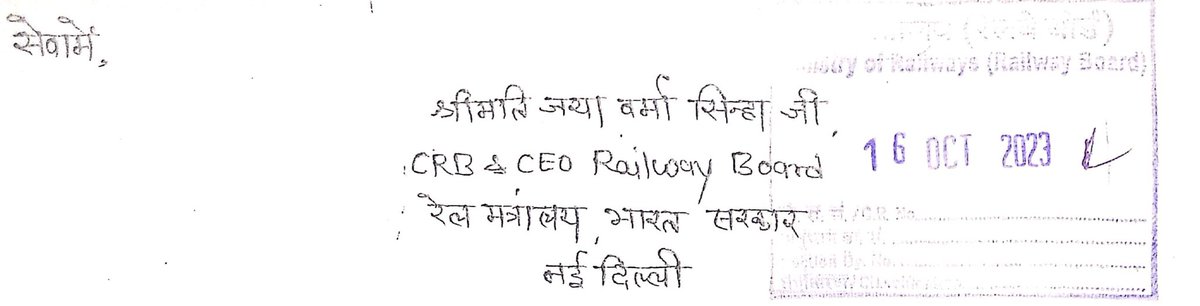 सेवामें,
श्रीमति जया वर्मा सिन्हा जी,
CRB & CEO Railway Board
रेल मंत्रालय, भारत सरकार
नई दिल्ली
(रेलवे बोर्ड)
of Railways (Railway Board)
16 OCT 2023